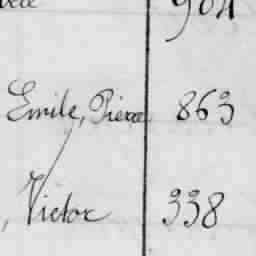 904
Emile, Pierre 863
, Victor 338